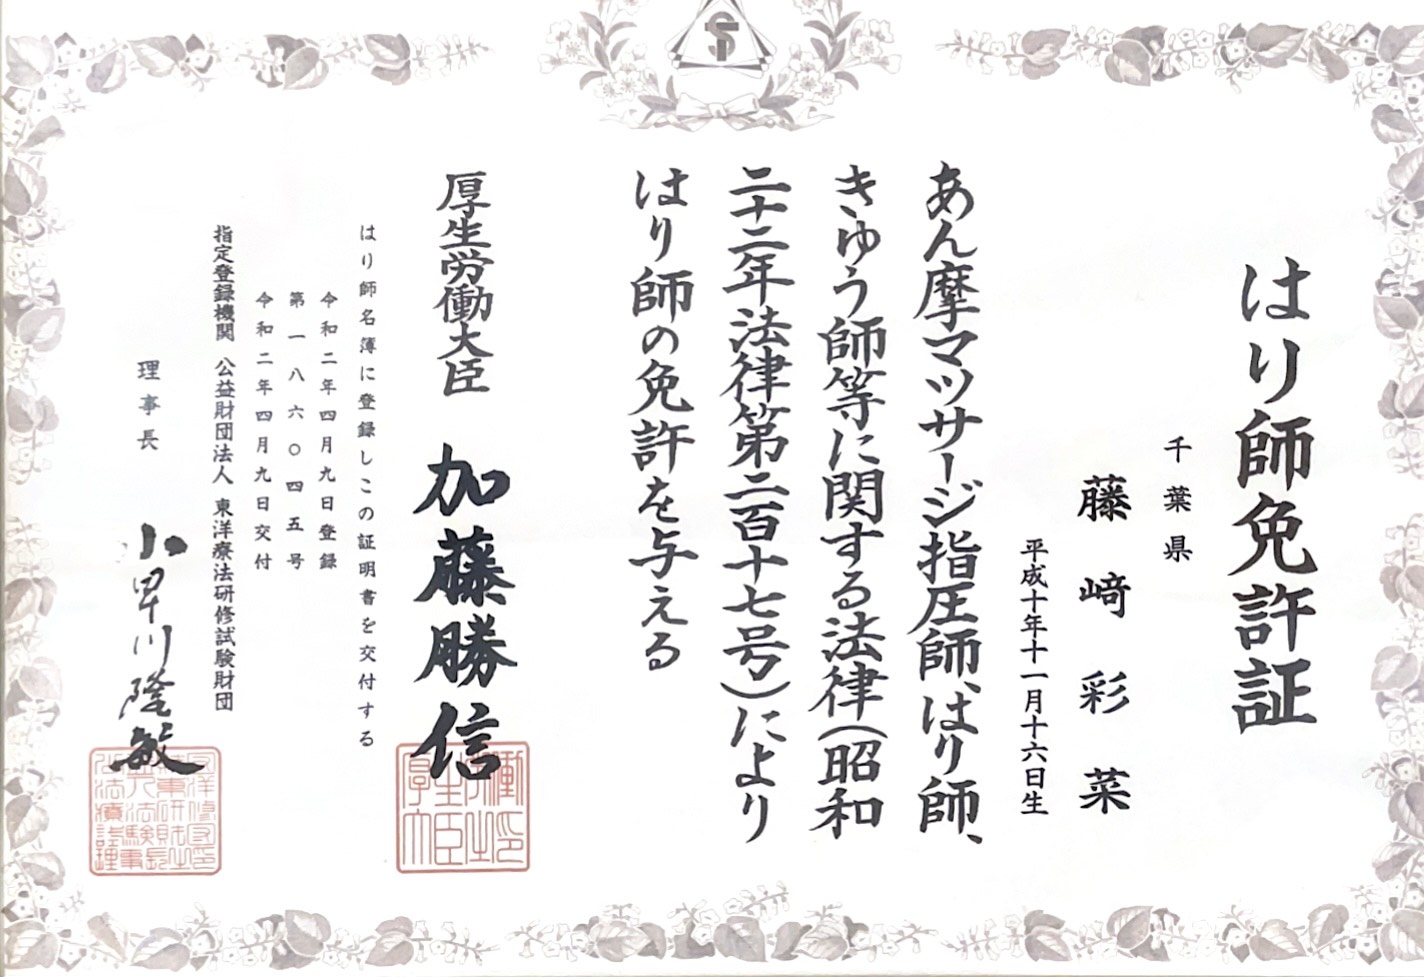 はり師免許証
千葉県
藤﨑彩菜
平成十年十一月十六日生
あん摩マツサージ指圧師、はり師、
きゆう師等に関する法律（昭和
二十二年法律第二百十七号）により
はり師の免許を与える
厚生労働大臣 加藤勝信
はり師名簿に登録しこの証明書を交付する
令和二年四月九日登録
第一八六〇四五号
令和二年四月九日交付
指定登録機関 公益財団法人 東洋療法研修試験財団
理事長 小早川隆敏